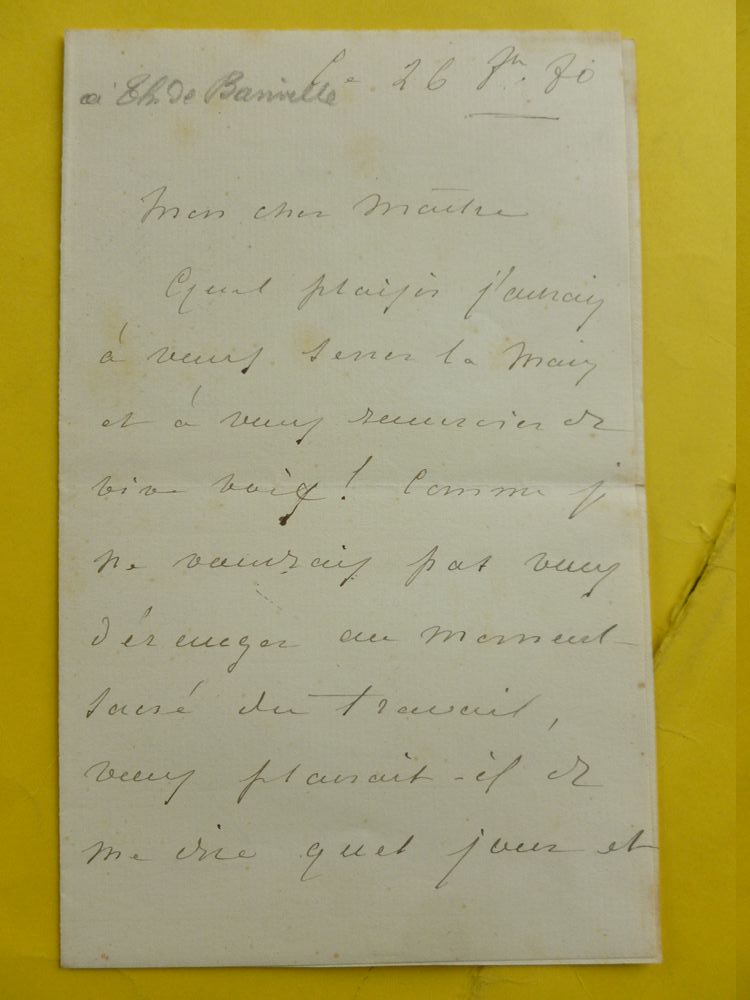 à Th. de Banville
Le 26
Mon cher Maître
Quel plaisir j'aurais
à vous serrer la main
et à vous remercier de
vive voix ! Comme je
ne voudrais pas vous
déranger au moment
sacré du travail,
vous plairait-il de
me dire quel jour et